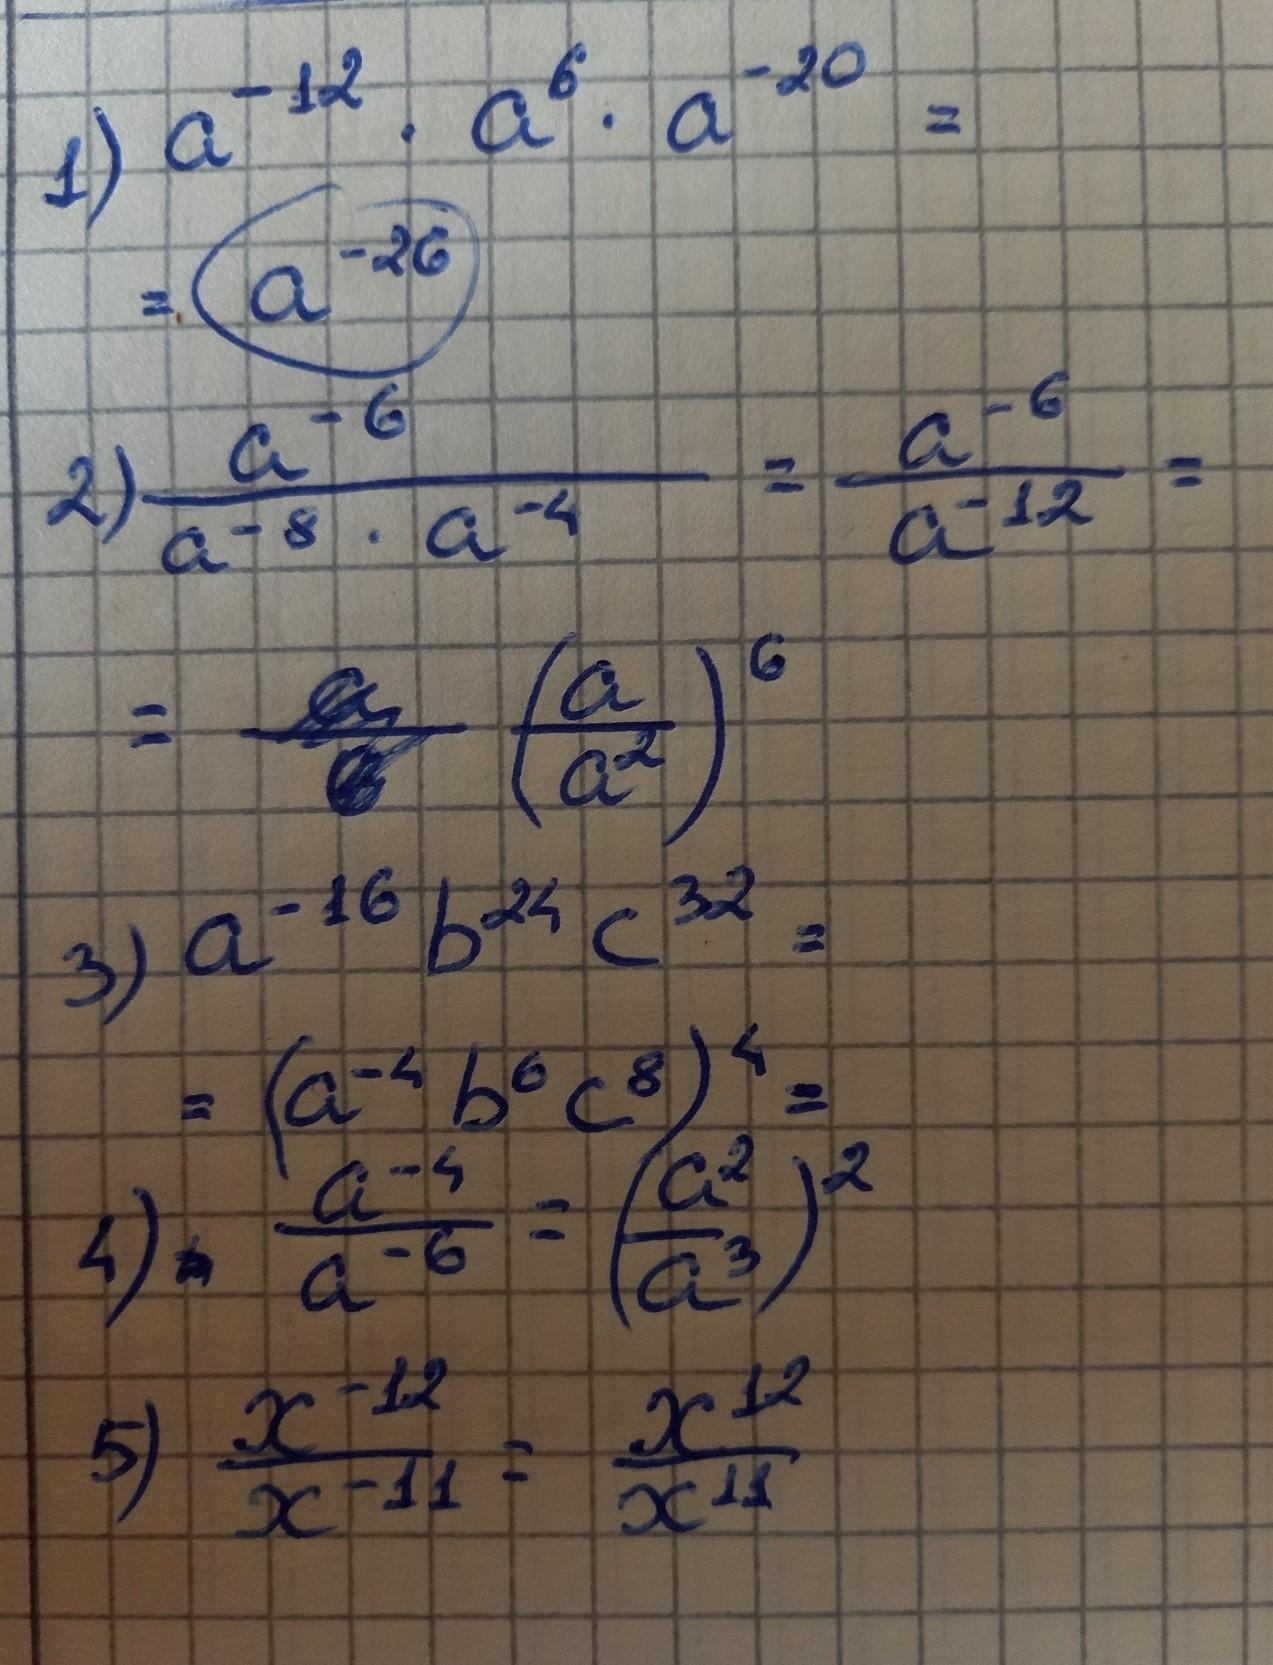 1) a⁻¹² · a⁶ · a⁻²⁰ =
= a⁻²⁶
2) a⁻⁶ / (a⁻⁸ · a⁻⁴) = a⁻⁶ / a⁻¹² =
= (a / a²)⁶
3) a⁻¹⁶ b²⁴ c³² =
= (a⁻⁴ b⁶ c⁸)⁴ =
4) a⁻⁴ / a⁻⁶ = (a² / a³)²
5) x⁻¹² / x⁻¹¹ = x¹² / x¹¹